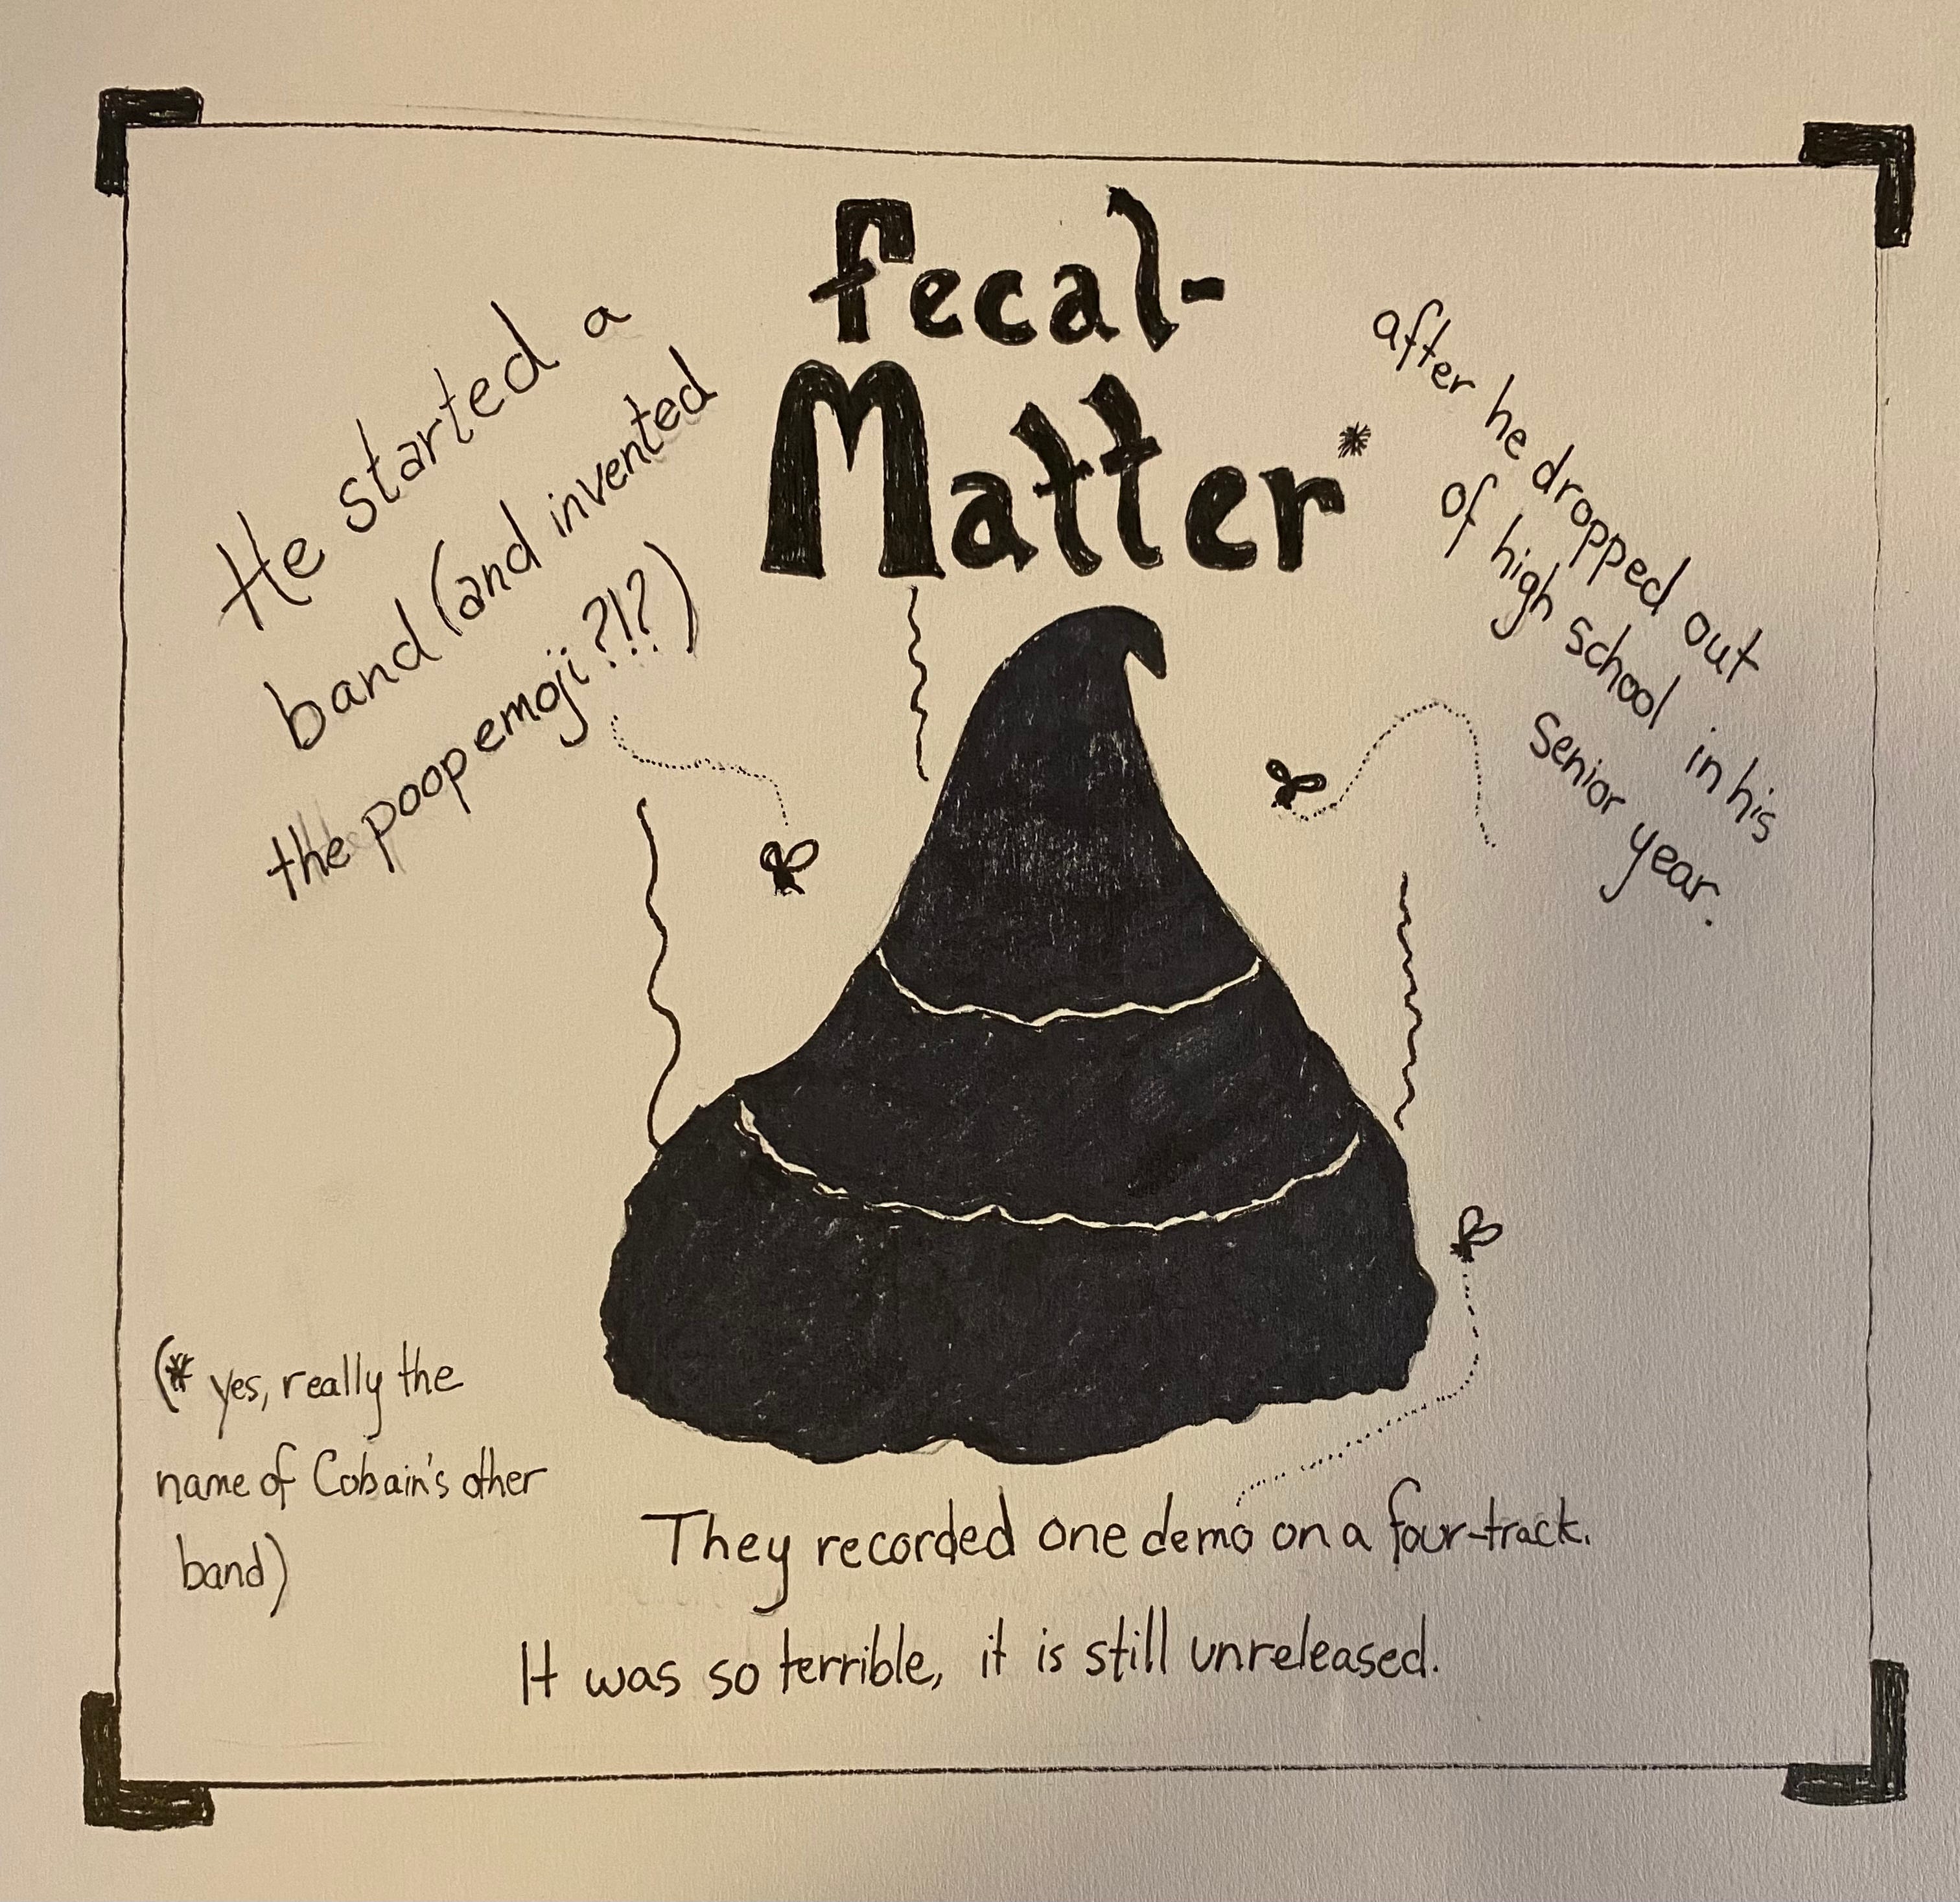 fecal-
Matter*
He started a
band (and invented
the poop emoji?!?)
after he dropped out
of high school in his
senior year.
(* yes, really the
name of Cobain's other
band)
They recorded one demo on a four-track.
It was so terrible, it is still unreleased.